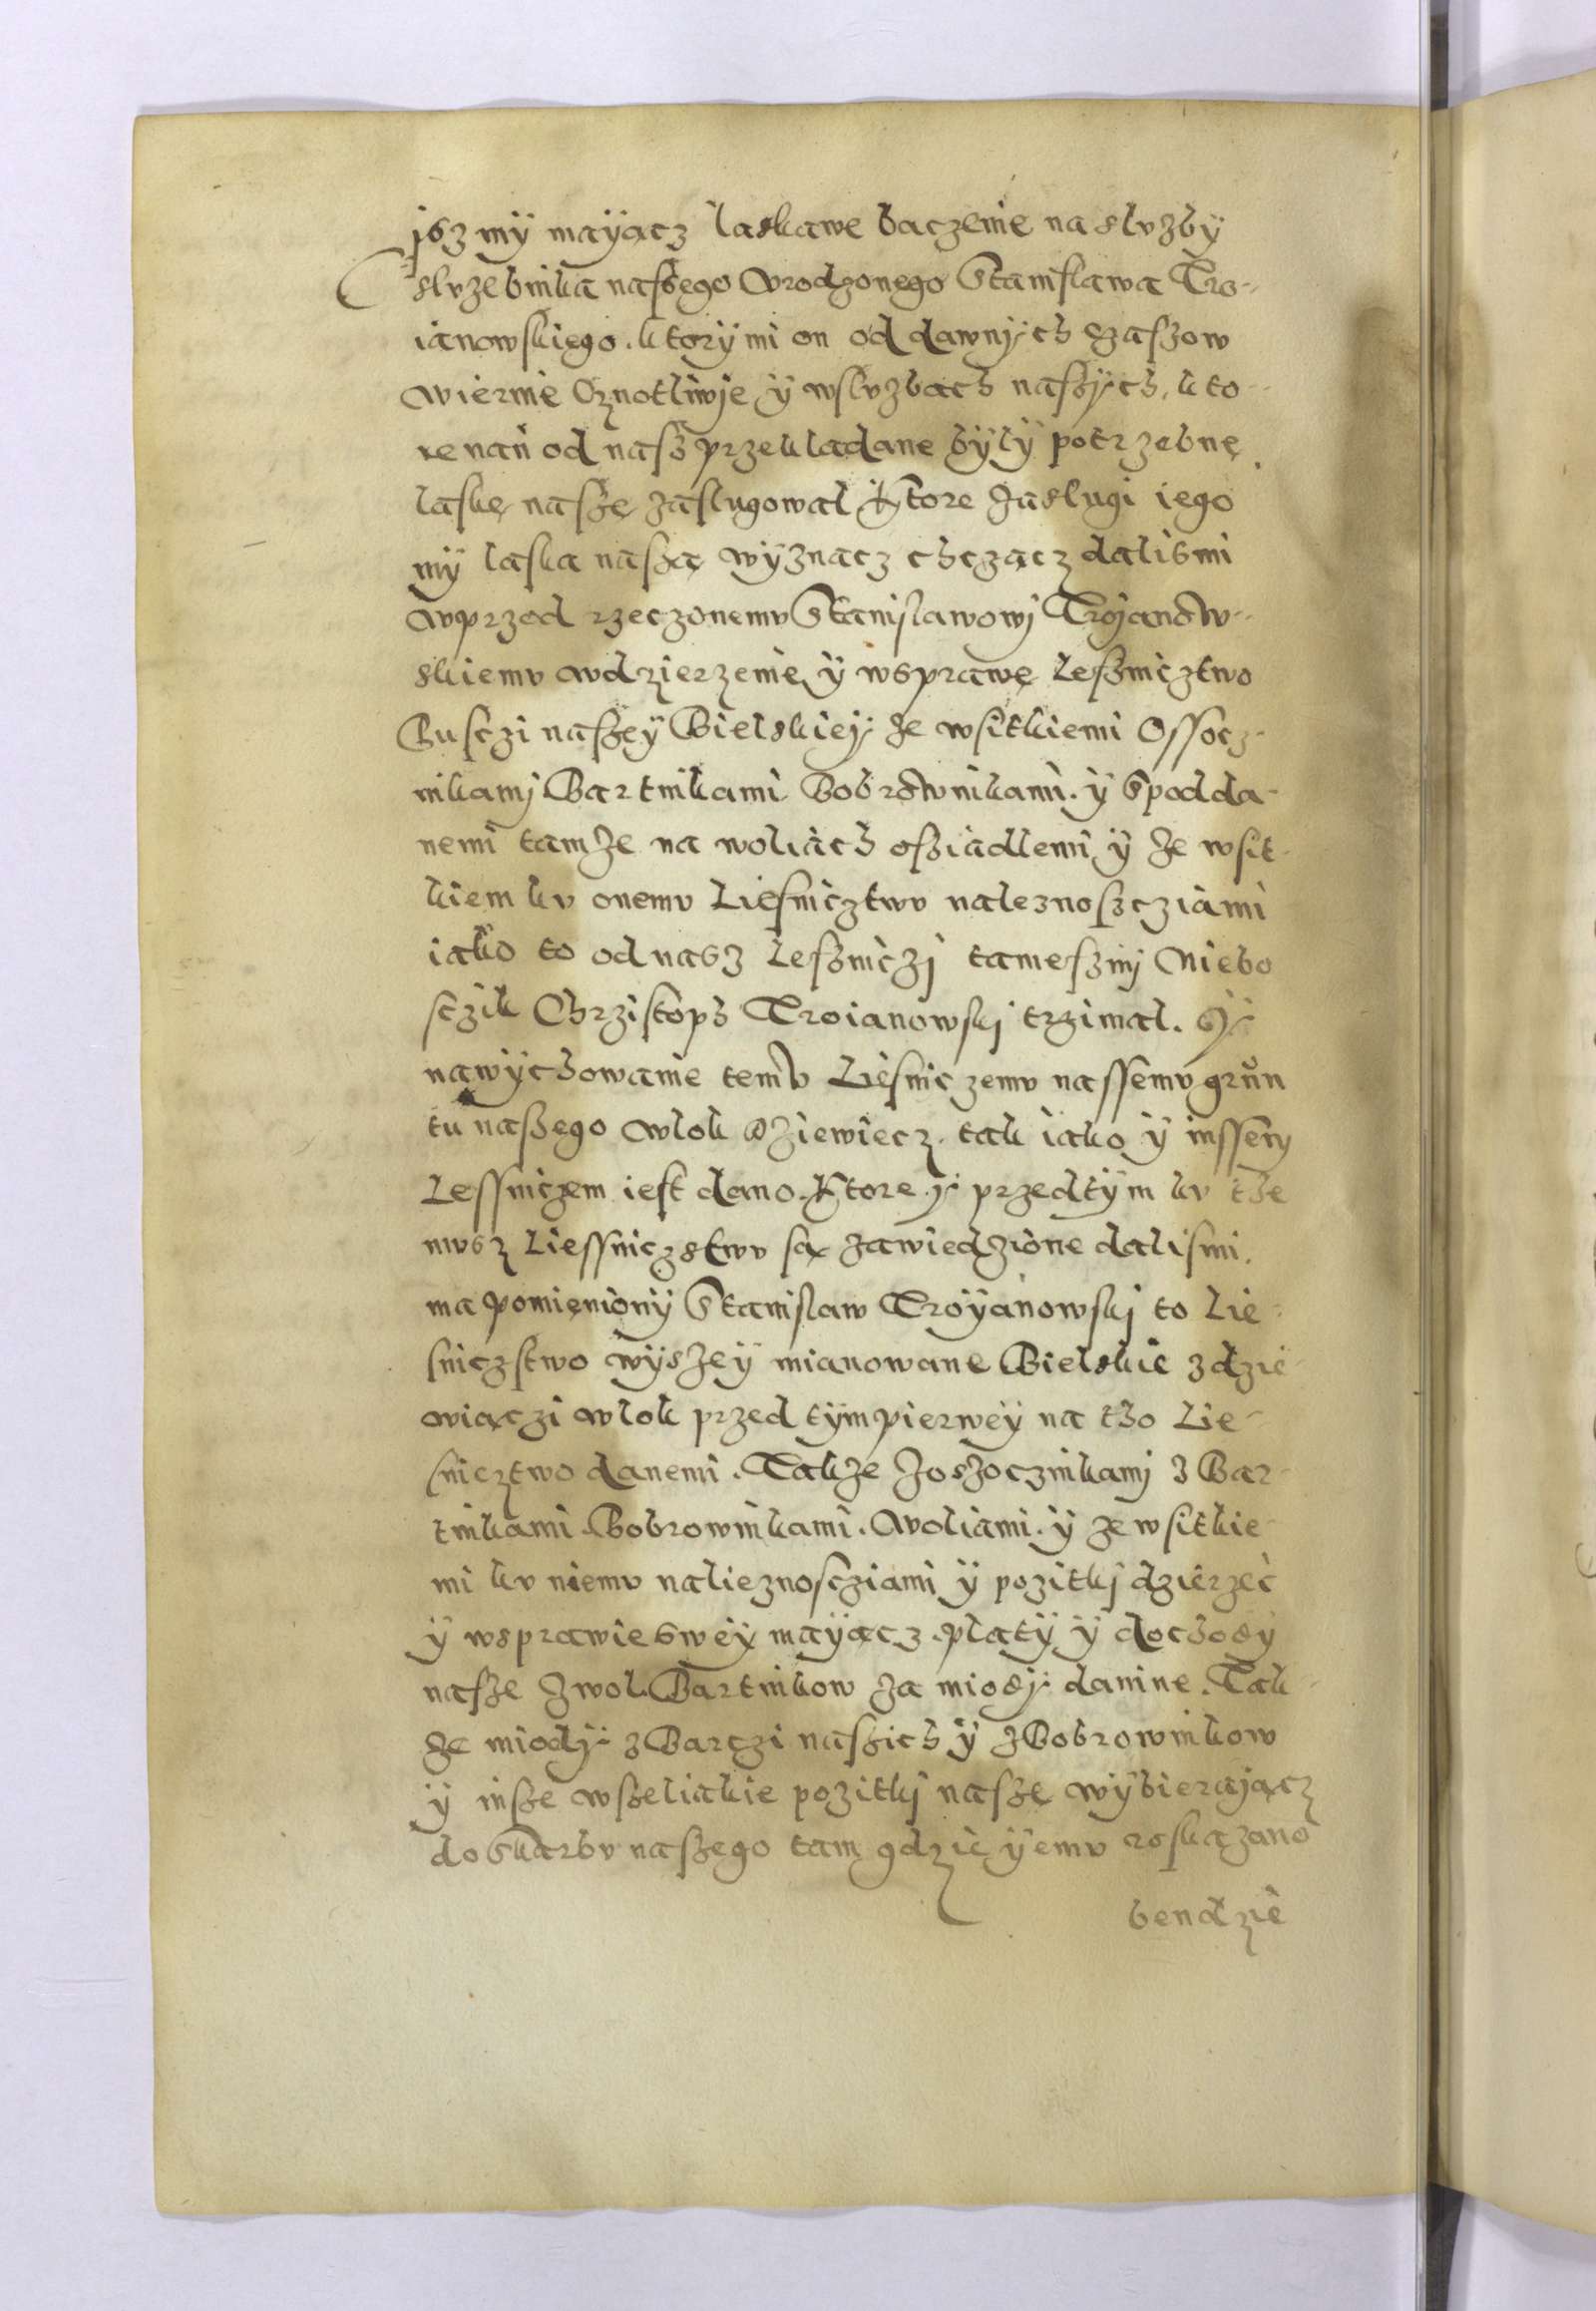 jsz mÿ maÿącz laskawe baczenie na slvzbÿ
slvzebnika naszego Vrodzonego Stanislawa Tro-
ianowskiego. ktorÿmi on od dawnÿch czaszow
wiernie Cznotliwje ÿ wslvzbach naszÿch, kto-
re nań od nasz przekladane bÿlÿ potrzebne
laskę naszę zaslugowal Ktore zaslugi iego
mÿ laska naszą wÿznacz chcząc dalismi
wprzod rzeczonemv Stanislawowj Trojanow-
skiemv wdzierzenie ÿ wsprawę Lesznicztwo
Pusczi naszeÿ Bielskieÿ ze wsitkiemi Ossocz-
nikamj Bartnikami Bobrownikami. ÿ spodda-
nemi tamze na woliach osziadlemi ÿ ze wsit-
kiem kv onemv Liesnicztwv naleznoszcziami
iako to od nasz Leszniczj tamesznj Niebo
sczik Chrzistoph Troianowskj trzimal. Ÿ
nawÿchowanie temv Liesniczemv nassemv grůn
tu naszego wlok dziewiecz. tak iako ÿ inssem
Lessniczem iest dano. Ktore ÿ przedtÿm kv the
mvsz Liessniczstwv są zawiedzione dalismi.
ma pomienionÿ Stanislaw Troÿanowskj to Lie-
sniczstwo wÿszeÿ mianowane Bielskie zdzie-
wiączi wlok przed tÿm pierweÿ na tho Lie-
snicztwo danemi. Takze zoszocznikamj z Bar-
tnikami Bobrownikami. Woliami. ÿ ze wsitkie-
mi kv niemv nalieznoscziami ÿ pozitkj dzierzeć
ÿ wsprawie sweÿ maÿącz platÿ ÿ dochodÿ
nasze zwol Bartnikow za miodÿ danine. Tak-
ze miodÿ z Barczi naszich ÿ z Bobrownikow
ÿ insze wszeliakie pozitkj nasze wÿbierającz
do skarbv naszego tam gdzie ÿemv roskazano
bendzie